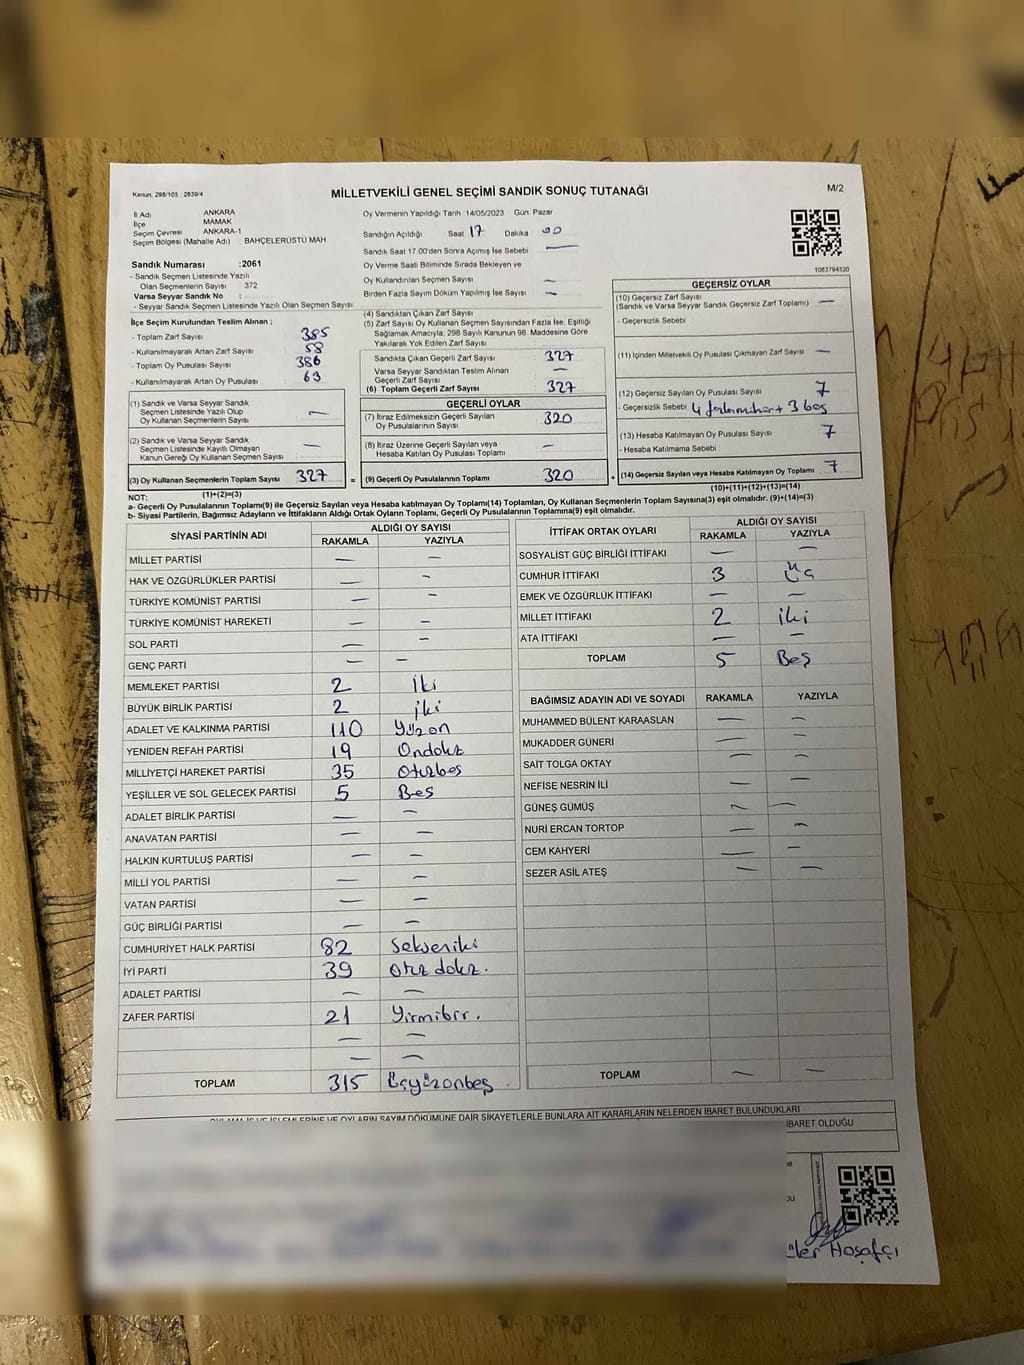 Kanun, 298/105 ; 2839/4
MİLLETVEKİLİ GENEL SEÇİMİ SANDIK SONUÇ TUTANAĞI
M/2
İl Adı ANKARA
İlçe MAMAK
Seçim Çevresi ANKARA-1
Seçim Bölgesi (Mahalle Adı) BAHÇELERÜSTÜ MAH
Sandık Numarası :2061
- Sandık Seçmen Listesinde Yazılı
Olan Seçmenlerin Sayısı 372
Varsa Seyyar Sandık No :
- Seyyar Sandık Seçmen Listesinde Yazılı Olan Seçmen Sayısı:
Oy Vermenin Yapıldığı Tarih :14/05/2023 Gün: Pazar
Sandığın Açıldığı Saat 17 Dakika 00
Sandık Saat 17:00'den Sonra Açılmış İse Sebebi —
Oy Verme Saati Bitiminde Sırada Bekleyen ve
Oy Kullandırılan Seçmen Sayısı —
Birden Fazla Sayım Döküm Yapılmış İse Sayısı —
1063794320
İlçe Seçim Kurulundan Teslim Alınan ;
- Toplam Zarf Sayısı 385
- Kullanılmayarak Artan Zarf Sayısı 58
- Toplam Oy Pusulası Sayısı 386
- Kullanılmayarak Artan Oy Pusulası 63
(1) Sandık ve Varsa Seyyar Sandık
Seçmen Listesinde Yazılı Olup
Oy Kullanan Seçmenlerin Sayısı —
(2) Sandık ve Varsa Seyyar Sandık
Seçmen Listesinde Kayıtlı Olmayan
Kanun Gereği Oy Kullanan Seçmen Sayısı —
(3) Oy Kullanan Seçmenlerin Toplam Sayısı 327
(1)+(2)=(3)
(4) Sandıktan Çıkan Zarf Sayısı
(5) Zarf Sayısı Oy Kullanan Seçmen Sayısından Fazla İse, Eşitliği
Sağlamak Amacıyla; 298 Sayılı Kanunun 98. Maddesine Göre
Yakılarak Yok Edilen Zarf Sayısı
Sandıkta Çıkan Geçerli Zarf Sayısı 327
Varsa Seyyar Sandıktan Teslim Alınan
Geçerli Zarf Sayısı —
(6) Toplam Geçerli Zarf Sayısı 327
GEÇERLİ OYLAR
(7) İtiraz Edilmeksizin Geçerli Sayılan
Oy Pusulalarının Sayısı 320
(8) İtiraz Üzerine Geçerli Sayılan veya
Hesaba Katılan Oy Pusulası Toplamı —
= (9) Geçerli Oy Pusulalarının Toplamı 320
GEÇERSİZ OYLAR
(10) Geçersiz Zarf Sayısı
(Sandık ve Varsa Seyyar Sandık Geçersiz Zarf Toplamı) —
- Geçersizlik Sebebi
(11) İçinden Milletvekili Oy Pusulası Çıkmayan Zarf Sayısı —
(12) Geçersiz Sayılan Oy Pusulası Sayısı 7
- Geçersizlik Sebebi 4 + 3 boş
(13) Hesaba Katılmayan Oy Pusulası Sayısı 7
- Hesaba Katılmama Sebebi :
+ (14) Geçersiz Sayılan veya Hesaba Katılmayan Oy Toplamı 7
(10)+(11)+(12)+(13)=(14)
NOT:
a- Geçerli Oy Pusulalarının Toplamı(9) ile Geçersiz Sayılan veya Hesaba katılmayan Oy Toplamı(14) Toplamları, Oy Kullanan Seçmenlerin Toplam Sayısına(3) eşit olmalıdır. (9)+(14)=(3)
b- Siyasi Partilerin, Bağımsız Adayların ve İttifakların Aldığı Oy Toplamı, Geçerli Oy Pusulalarının Toplamına(9) eşit olmalıdır.
SİYASİ PARTİNİN ADI ALDIĞI OY SAYISI
RAKAMLA YAZIYLA
MİLLET PARTİSİ — —
HAK VE ÖZGÜRLÜKLER PARTİSİ — —
TÜRKİYE KOMÜNİST PARTİSİ — —
TÜRKİYE KOMÜNİST HAREKETİ — —
SOL PARTİ — —
GENÇ PARTİ — —
MEMLEKET PARTİSİ 2 İki
BÜYÜK BİRLİK PARTİSİ 2 iki
ADALET VE KALKINMA PARTİSİ 110 Yüzon
YENİDEN REFAH PARTİSİ 19 Ondokz
MİLLİYETÇİ HAREKET PARTİSİ 35 Otuzbeş
YEŞİLLER VE SOL GELECEK PARTİSİ 5 Beş
ADALET BİRLİK PARTİSİ — —
ANAVATAN PARTİSİ — —
HALKIN KURTULUŞ PARTİSİ — —
MİLLİ YOL PARTİSİ — —
VATAN PARTİSİ — —
GÜÇ BİRLİĞİ PARTİSİ — —
CUMHURİYET HALK PARTİSİ 82 Sekseniki
İYİ PARTİ 39 Otuz dokz.
ADALET PARTİSİ — —
ZAFER PARTİSİ 21 Yirmibir.
— —
— —
TOPLAM 315 Üçyüzonbeş
İTTİFAK ORTAK OYLARI ALDIĞI OY SAYISI
RAKAMLA YAZIYLA
SOSYALİST GÜÇ BİRLİĞİ İTTİFAKI — —
CUMHUR İTTİFAKI 3 Üç
EMEK VE ÖZGÜRLÜK İTTİFAKI — —
MİLLET İTTİFAKI 2 iki
ATA İTTİFAKI — —
TOPLAM 5 Beş
BAĞIMSIZ ADAYIN ADI VE SOYADI RAKAMLA YAZIYLA
MUHAMMED BÜLENT KARAASLAN — —
MUKADDER GÜNERİ — —
SAİT TOLGA OKTAY — —
NEFİSE NESRİN İLİ — —
GÜNEŞ GÜMÜŞ — —
NURİ ERCAN TORTOP — —
CEM KAHYERİ — —
SEZER ASİL ATEŞ — —
TOPLAM — —
OYLAMA İŞ VE İŞLEMLERİNE VE OYLARIN SAYIM DÖKÜMÜNE DAİR ŞİKAYETLERLE BUNLARA AİT KARARLARIN NELERDEN İBARET BULUNDUKLARI
İBARET OLDUĞU
Hoşafçı